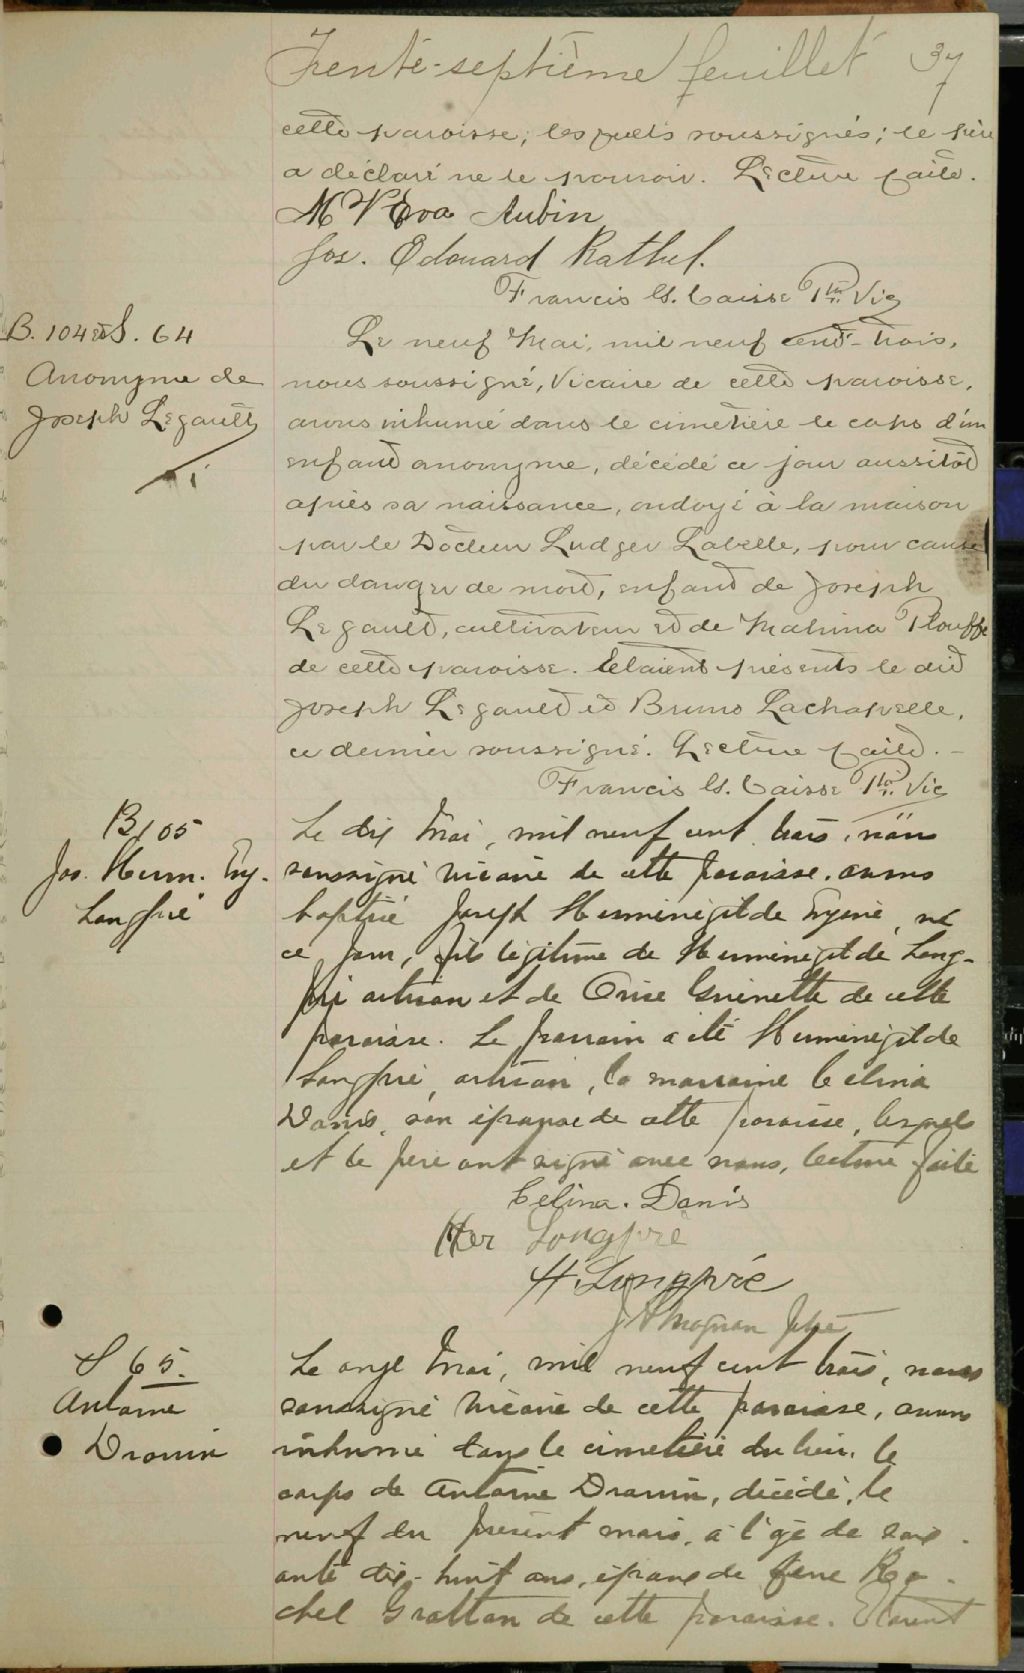 Trente-septième feuillet 37
cette paroisse, lesquels soussignés; le père
a déclaré ne le pouvoir. Lecture faite.
M V Eva Aubin
Jos. Edouard Rathel.
Francis Caisse Ptre Vic
B. 104 et S. 64
Anonyme de
Joseph Legault
Le neuf Mai, mil neuf cent-trois,
nous soussigné, Vicaire de cette paroisse,
avons inhumé dans le cimetière le corps d'un
enfant anonyme, décédé ce jour aussitôt
après sa naissance, ondoyé à la maison
par le Docteur Ludger Labelle, pour cause
du danger de mort, enfant de Joseph
Legault, cultivateur et de Malvina Plouffe
de cette paroisse. Etaient présents le dit
Joseph Legault et Bruno Lachapelle,
ce dernier soussigné. Lecture faite.
Francis Caisse Ptre. Vic
B 105
Jos. Herm. Eug.
Longpré
Le dix Mai, mil neuf cent trois, nous
soussigné vicaire de cette paroisse, avons
baptisé Joseph Herménégilde Eugène, né
ce jour, fils légitime de Herménégilde Long-
pré artisan et de Orise Guénette de cette
paroisse. Le parrain a été Herménégilde
Longpré, artisan, la marraine Celina
Danis, son épouse de cette paroisse, lesquels
et le père ont signé avec nous, lecture faite
Celina. Danis
Her Longpré
H. Longpré
J A Magnan Ptre
S 65.
Antoine
Drouin
Le onze Mai, mil neuf cent trois, nous
soussigné vicaire de cette paroisse, avons
inhumé dans le cimetière du lieu, le
corps de Antoine Drouin, décédé, le
neuf du présent mois, à l'âge de soix-
ante dix-huit ans, époux de feue Ra-
chel Gratton de cette paroisse. Etaient